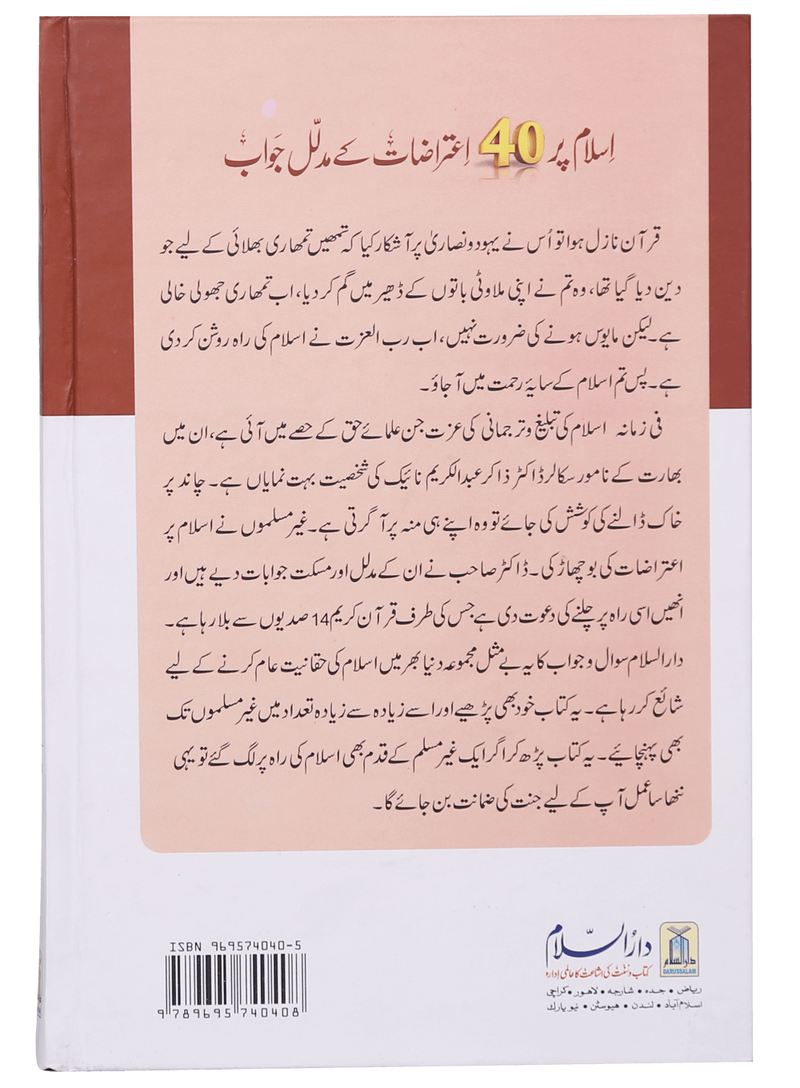 اسلام پر 40 اعتراضات کے مدلّل جواب
قرآن نازل ہوا تو اُس نے یہود و نصاریٰ پر آشکار کیا کہ تمھیں تمھاری بھلائی کے لیے جو
دین دیا گیا تھا، وہ تم نے اپنی ملاوٹی باتوں کے ڈھیر میں گم کر دیا، اب تمھاری جھولی خالی
ہے۔ لیکن مایوس ہونے کی ضرورت نہیں، اب رب العزت نے اسلام کی راہ روشن کر دی
ہے۔ پس تم اسلام کے سایۂ رحمت میں آ جاؤ۔
فی زمانہ اسلام کی تبلیغ و ترجمانی کی عزت جن علمائے حق کے حصے میں آئی ہے، ان میں
بھارت کے نامور سکالر ڈاکٹر ذاکر عبدالکریم نائیک کی شخصیت بہت نمایاں ہے۔ چاند پر
خاک ڈالنے کی کوشش کی جائے تو وہ اپنے ہی منہ پر آ گرتی ہے۔ غیر مسلموں نے اسلام پر
اعتراضات کی بوچھاڑ کی۔ ڈاکٹر صاحب نے ان کے مدلل اور مسکت جوابات دیے ہیں اور
انھیں اسی راہ پر چلنے کی دعوت دی ہے جس کی طرف قرآن کریم 14 صدیوں سے بلا رہا ہے۔
دارالسلام سوال و جواب کا یہ بے مثل مجموعہ دنیا بھر میں اسلام کی حقانیت عام کرنے کے لیے
شائع کر رہا ہے۔ یہ کتاب خود بھی پڑھیے اور اسے زیادہ سے زیادہ تعداد میں غیر مسلموں تک
بھی پہنچائیے۔ یہ کتاب پڑھ کر اگر ایک غیر مسلم کے قدم بھی اسلام کی راہ پر لگ گئے تو یہی
ننھا سا عمل آپ کے لیے جنت کی ضمانت بن جائے گا۔
دارالسلام
دارُالسّلام
DARUSSALAM
کتاب و سنت کی اشاعت کا عالمی ادارہ
ریاض • جدہ • شارجہ • لاہور • کراچی
اسلام آباد • لندن • ہیوسٹن • نیو یارک
ISBN 969574040-5
9 789695 740408